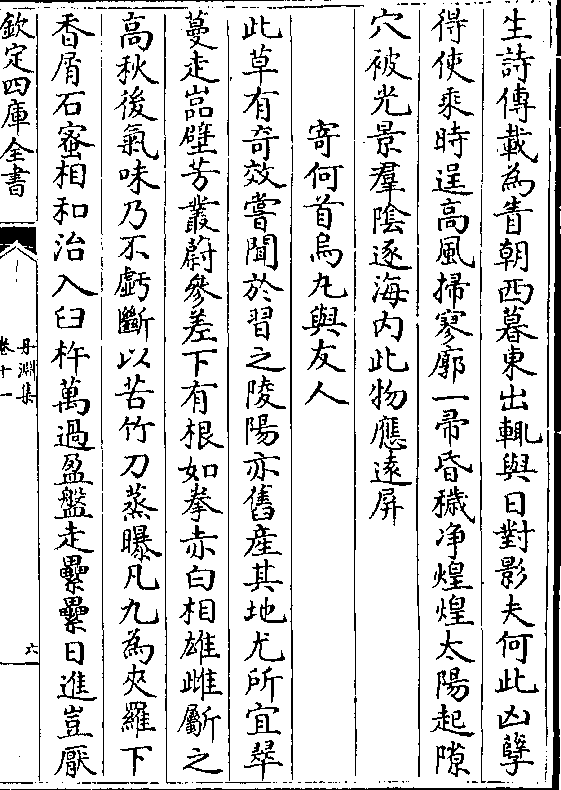 生詩傳載為眚朝西暮東出輒與日對影夫何此凶孽
得使乘時逞高風掃寥廓一帚昏穢净煌煌太陽起隙
穴被光景羣陰逐海内此物應遠屏
寄何首烏丸與友人
此草有奇效嘗聞於習之陵陽亦舊產其地尤所宜翠
蔓走嵓壁芳叢蔚參差下有根如拳赤白相雄雌斸之
高秋後氣味乃不虧斷以苦竹刀蒸曝凡九為夾羅下
香屑石蜜相和治入臼杵萬過盈盤走纍纍日進豈厭
欽定四庫全書
丹淵集
卷十一
六